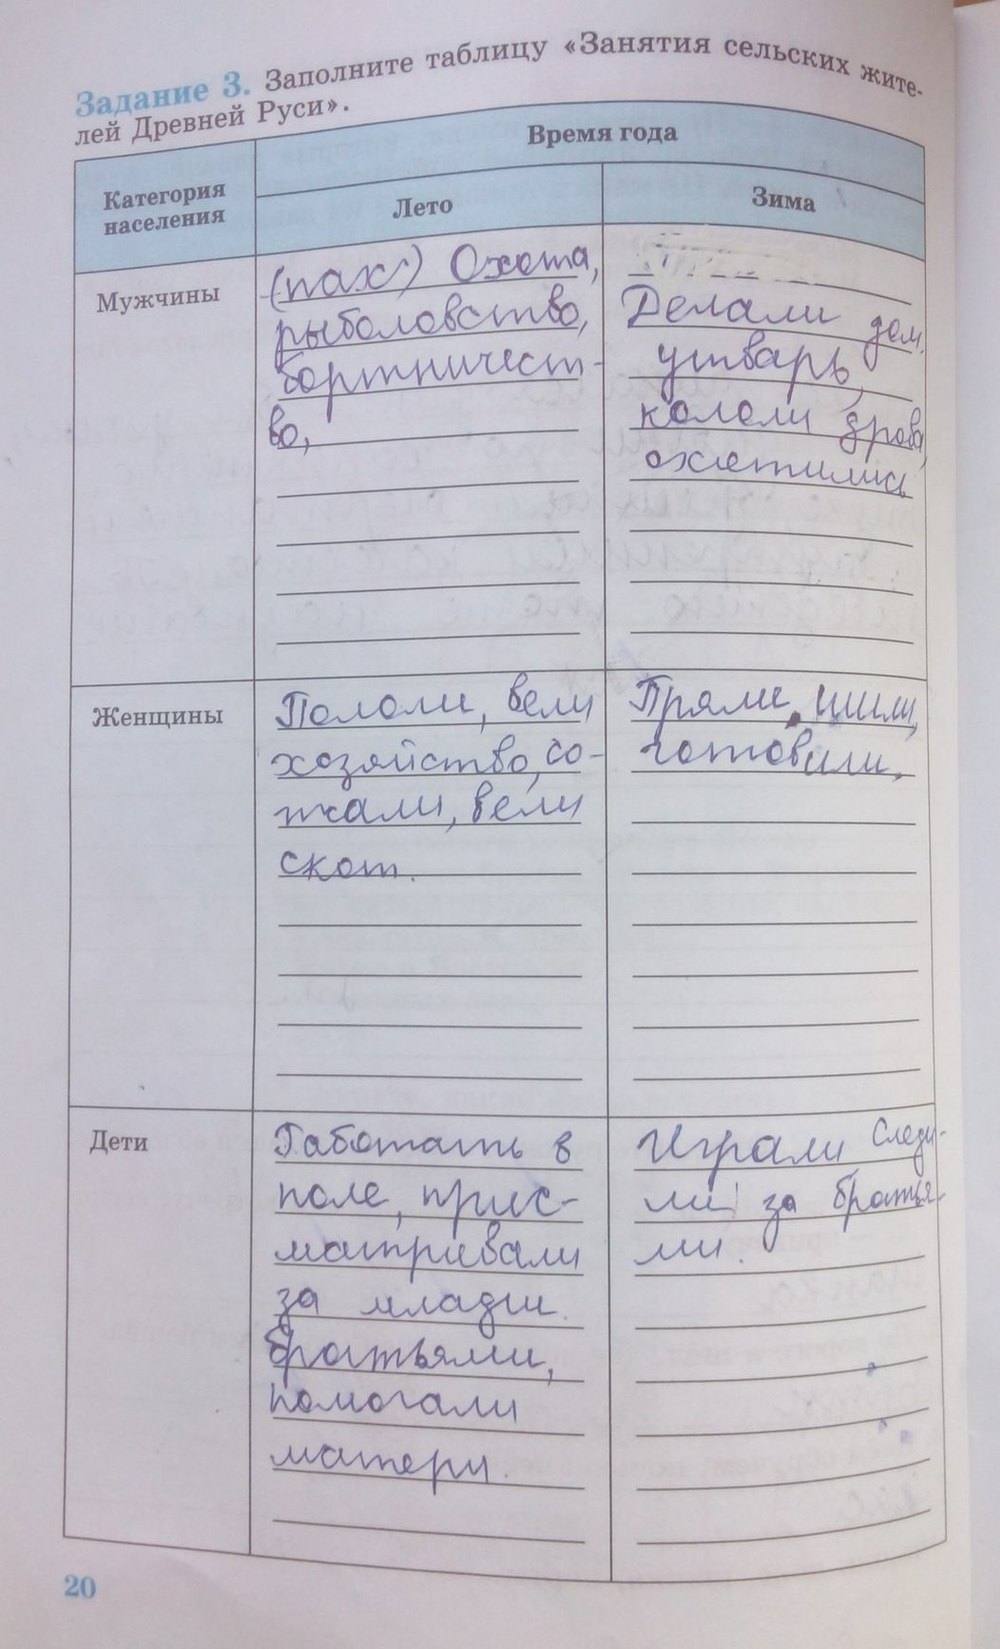 Задание 3. Заполните таблицу «Занятия сельских жите-
лей Древней Руси».
Категория
населения
Время года
Лето
Зима
Мужчины
(пах) Охота,
рыболовство,
бортничест-
во,
Делали дом.
утварь,
кололи дрова,
охотились
Женщины
Пололи, вели
хозяйство, со-
ткали, вели
скот.
Пряли, шили,
готовили.
Дети
Работать в
поле, прис-
матривали
за младш.
братьями,
помогали
матери.
Играли следи-
ли за братья-
ми.
20